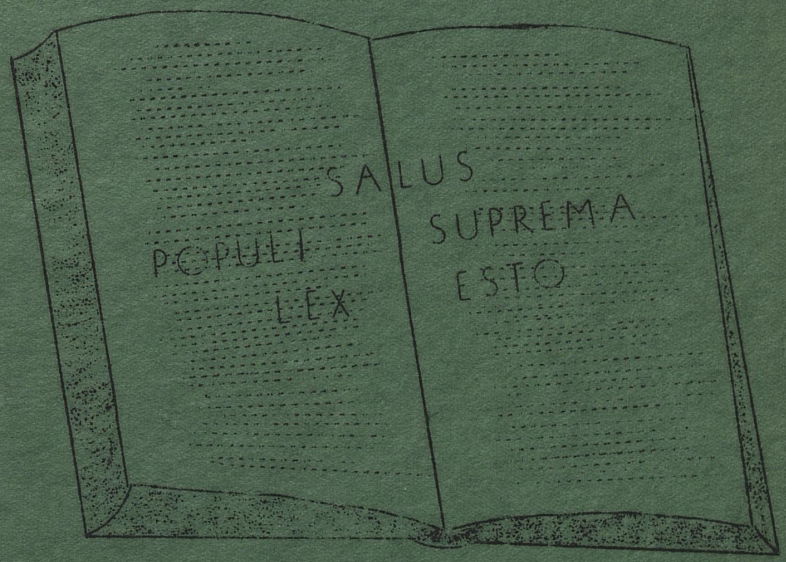 SALUS
POPULI SUPREMA
LEX ESTO